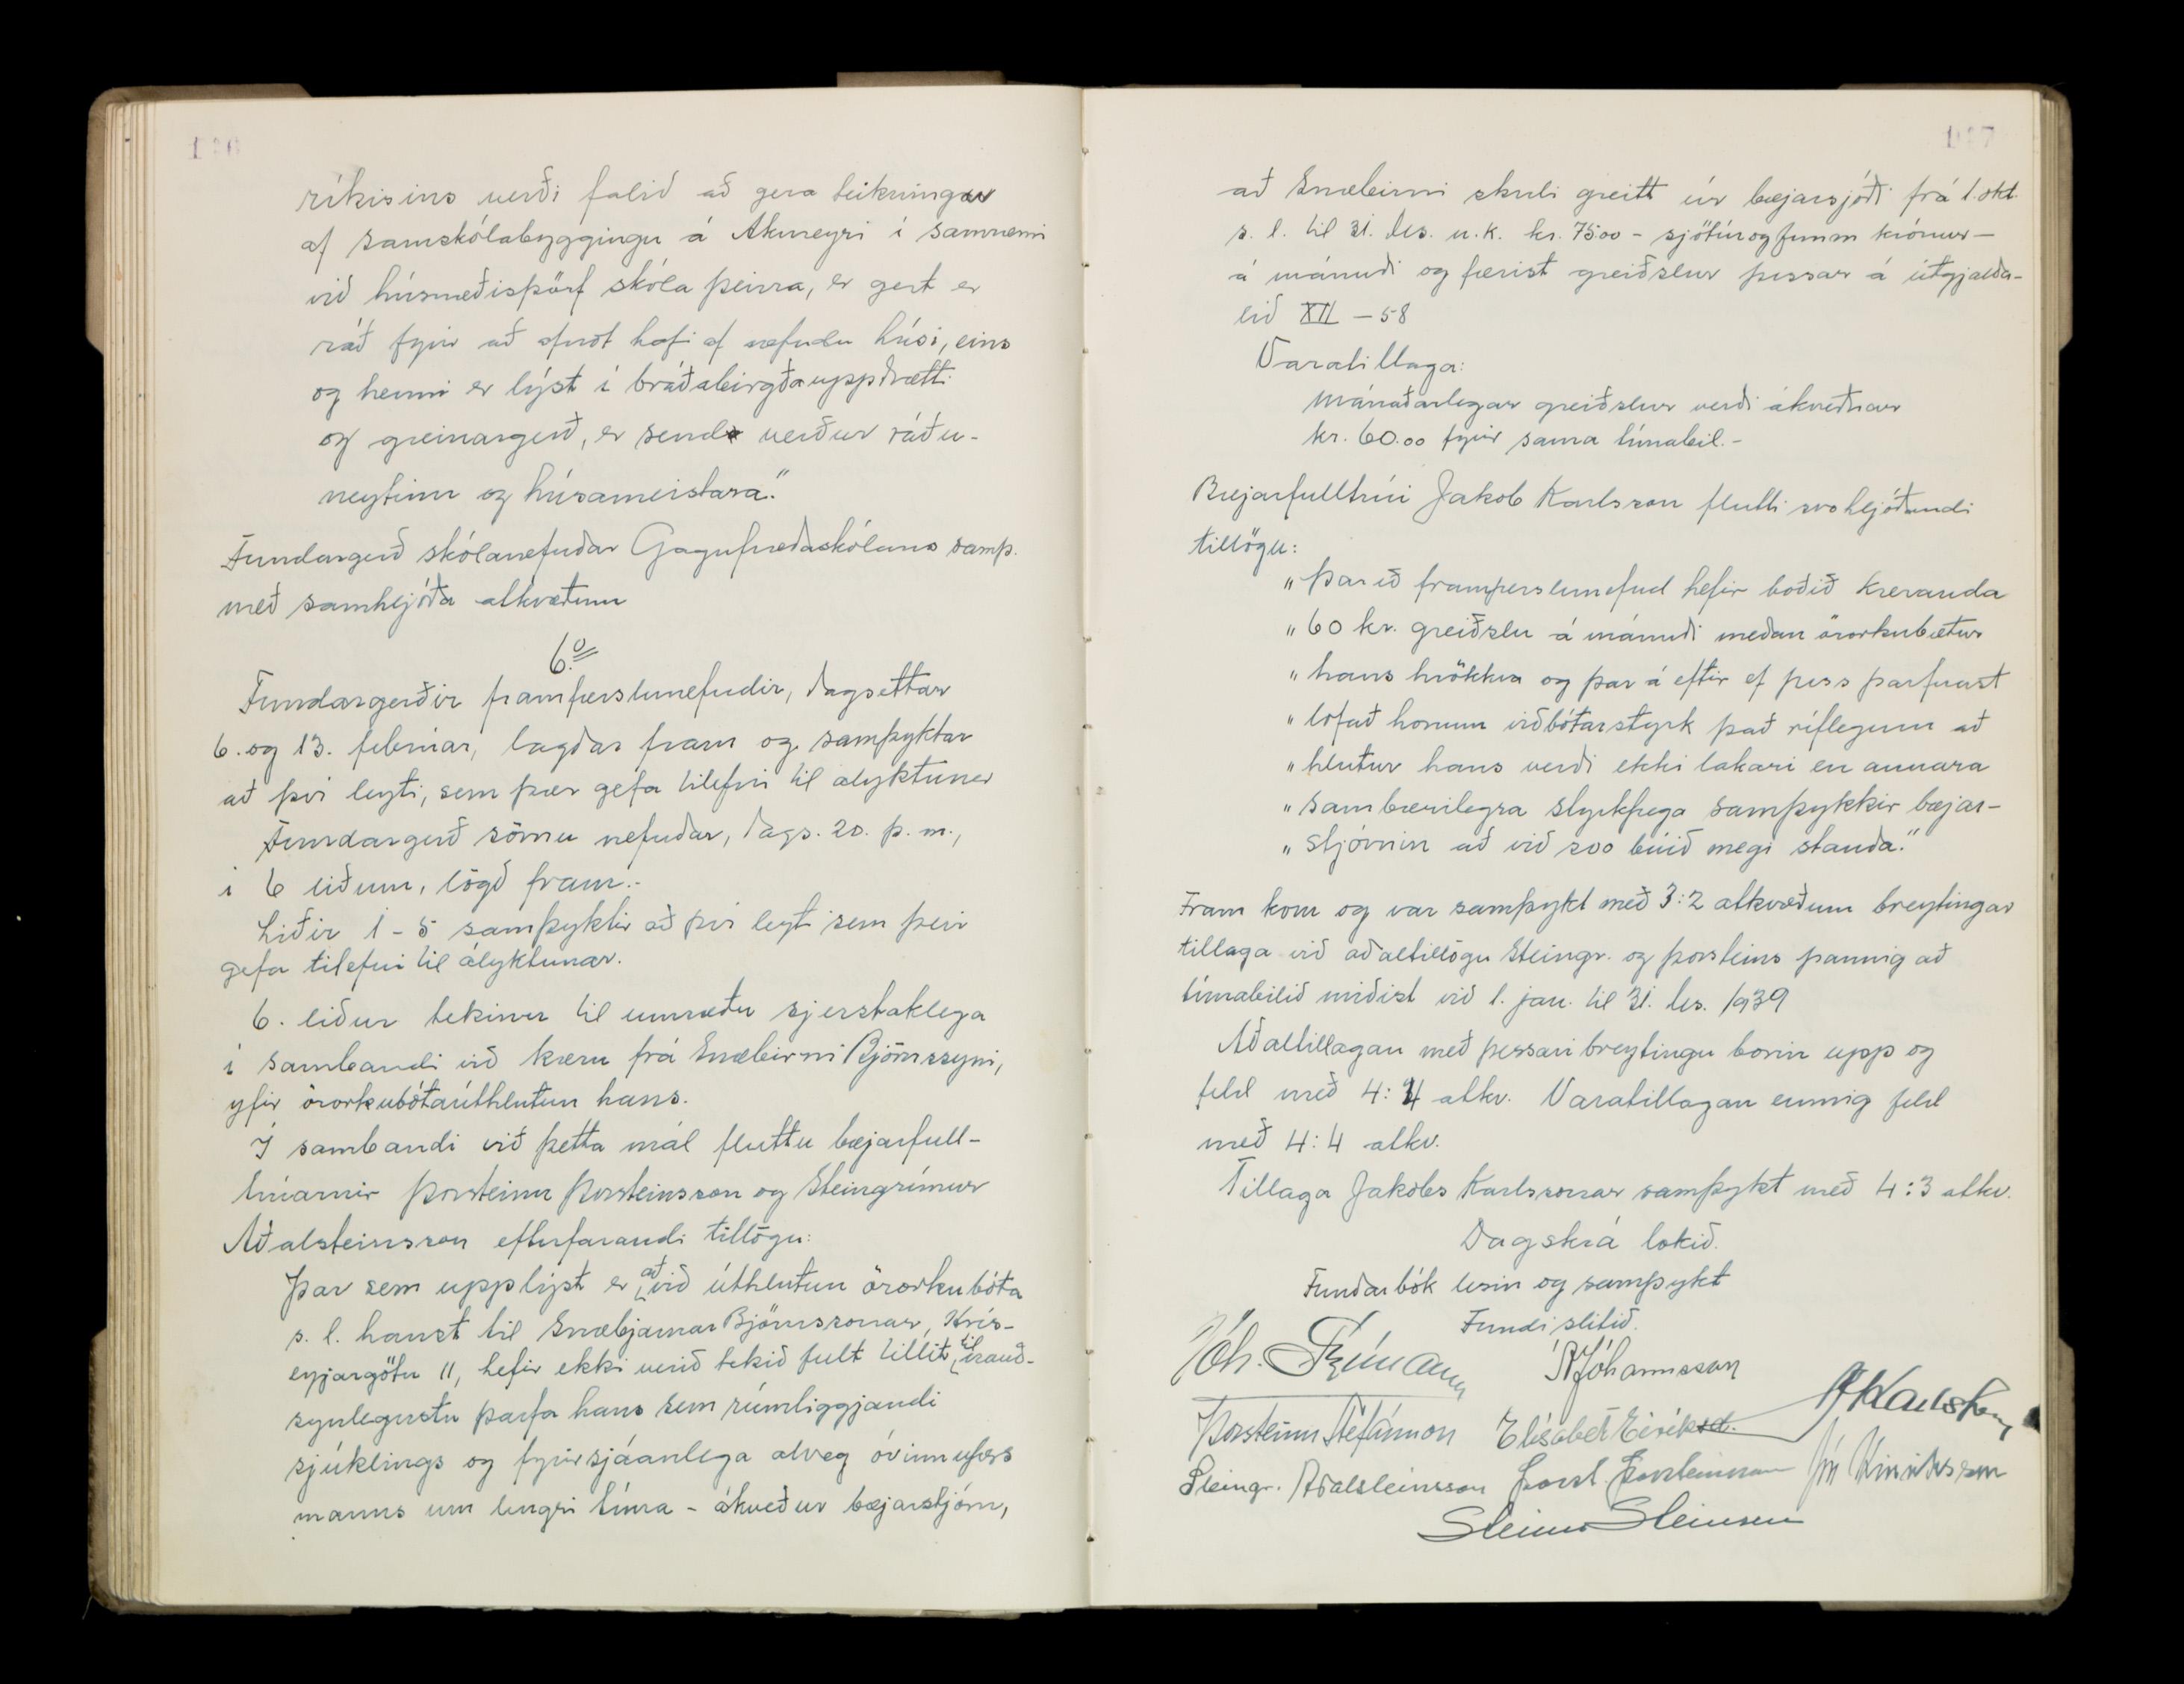 ríkisins verði falið að gera teikningar
af samskólabyggingu á Akureyri í samræmi
við húsnæðisþörf skóla þeirra, er gert er
ráð fyrir að afnot hafi af nefndu húsi, eins
og henni er lýst í bráðabirgðauppdrætti
og greinargerð, er send verður ráðu-
neytinu og húsameistara."
Fundargerð skólanefndar Gagnfræðaskólans samþ.
með samhljóða atkvæðum
6.º
Fundargerðir framfærslunefndir, dagsettar
6. og 13. febrúar, lagðar fram og samþyktar
að því leyti, sem þær gefa tilefni til alyktunar
Fundargerð sömu nefndar, dags. 20. þ. m.,
í 6 liðum, lögð fram.-
Liðir 1 - 5 samþyktir að því leyti sem þeir
gefa tilefni til ályktunar.
6. liður tekinn til umræðu sjerstaklega
í sambandi við kæru frá Snæbirni Björnssyni,
yfir örorkubótaúthlutun hans.
Í sambandi við þetta mál fluttu bæjarfull-
trúarnir Þorsteinn Þorsteinsson og Steingrímur
Aðalsteinsson eftirfarandi tillögu:
Þar sem upplýst er að við úthlutun örorkubóta
s. l. haust til Snæbjarnar Björnssonar, Hrís-
eyjargötu 11, hefir ekki verið tekið fult tillit til brauð-
synlegustu þarfa hans sem rúmliggjandi
sjúklings og fyrirsjáanlega alveg óvinnufærs
manns um lengri tíma - ákveður bæjarstjórn,
137
að Snæbirni skuli greitt úr bæjarsjóði frá 1. okt.
s. l. til 31. des. n.k. kr. 75.00 - sjötíu og fimm krónur -
á mánuði og færist greiðslur þessar á útgjalda-
lið XII - 58
Varatillaga:
Mánaðarlegar greiðslur verði ákveðnar
kr. 60.00 fyrir sama tímabil.-
Bæjarfulltrúi Jakob Karlsson flutti svohljóðandi
tillögu:
" Þar eð framfærslunefnd hefir boðið kæranda
" 60 kr. greiðslu á mánuði meðan örorkubætur
" hans hrökkva og þar á eftir ef þess þarfnast
" lofað honum viðbótarstyrk það ríflegum að
" hlutur hans verði ekki lakari en annara
" sambærilegra styrkþega samþykkir bæjar-
" stjórnin að við svo búið megi standa."
Fram kom og var samþykt með 3:2 atkvæðum breytingar
tillaga við aðaltillögu Steingr. og Þorsteins þannig að
tímabilið miðist við 1. jan. til 31. des. 1939
Aðaltillagan með þessari breytingu borin upp og
feld með 4:4 atkv. Varatillagan einnig feld
með 4:4 atkv.
Tillaga Jakobs Karlssonar samþykt með 4:3 atkv.
Dagskrá lokið.
Fundarbók lesin og samþykt
Fundi slitið.
Jóh. Frímann Jóhannsson
Þorsteinn Stefánsson Elísabet Eiríksd. Karlsson
Steingr. Aðalsteinsson Þorst. Þorsteinsson Jón Hinriksson
Steinn Steinsen